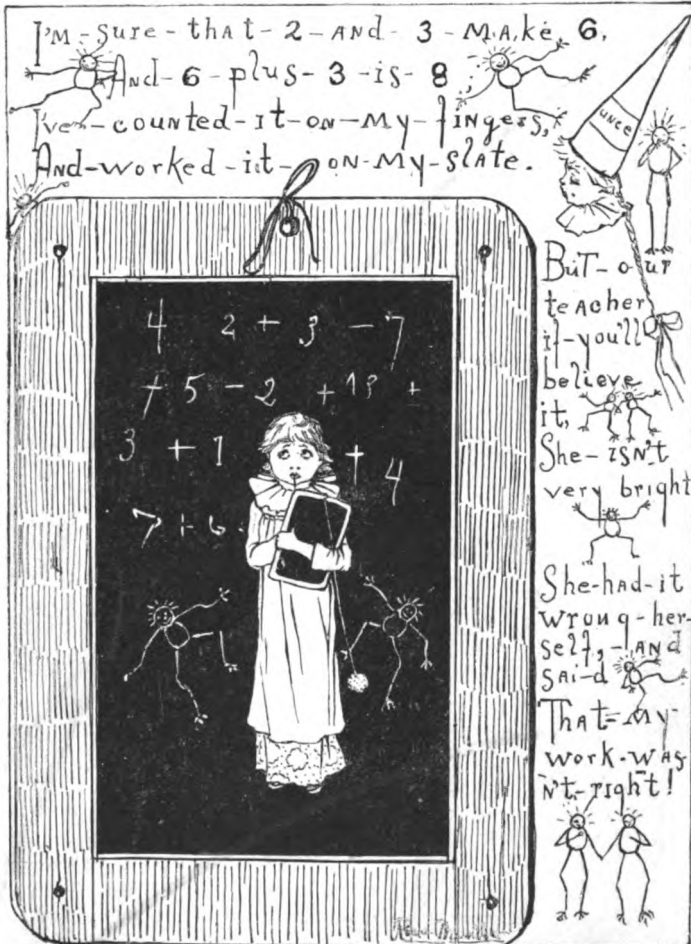 I'm-sure-that-2-and-3-make, 6,
And-6-plus-3-is-8,
I've-counted-it-on-my-fingers,
And-worked-it-on-my-slate.
unce
But-our
teacher
if-you'll
believe
it,
She-isn't
very bright
She-had-it
wrong-her-
self,-and
said
That-my
work-was
n't-right!
4 2 + 3 - 7
+ 5 - 2 + 13 +
3 + 1 + 4
7 + 6